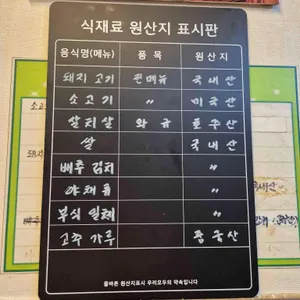 식재료 원산지 표시판
음식명(메뉴) 품 목 원 산 지
돼지 고기 전메뉴 국내산
소고기 〃 미국산
살치살 와규 호주산
쌀 국내산
배추 김치 〃
야채류 〃
부식 일체 〃
고추 가루 중국산
올바른 원산지표시 우리모두의 약속입니다